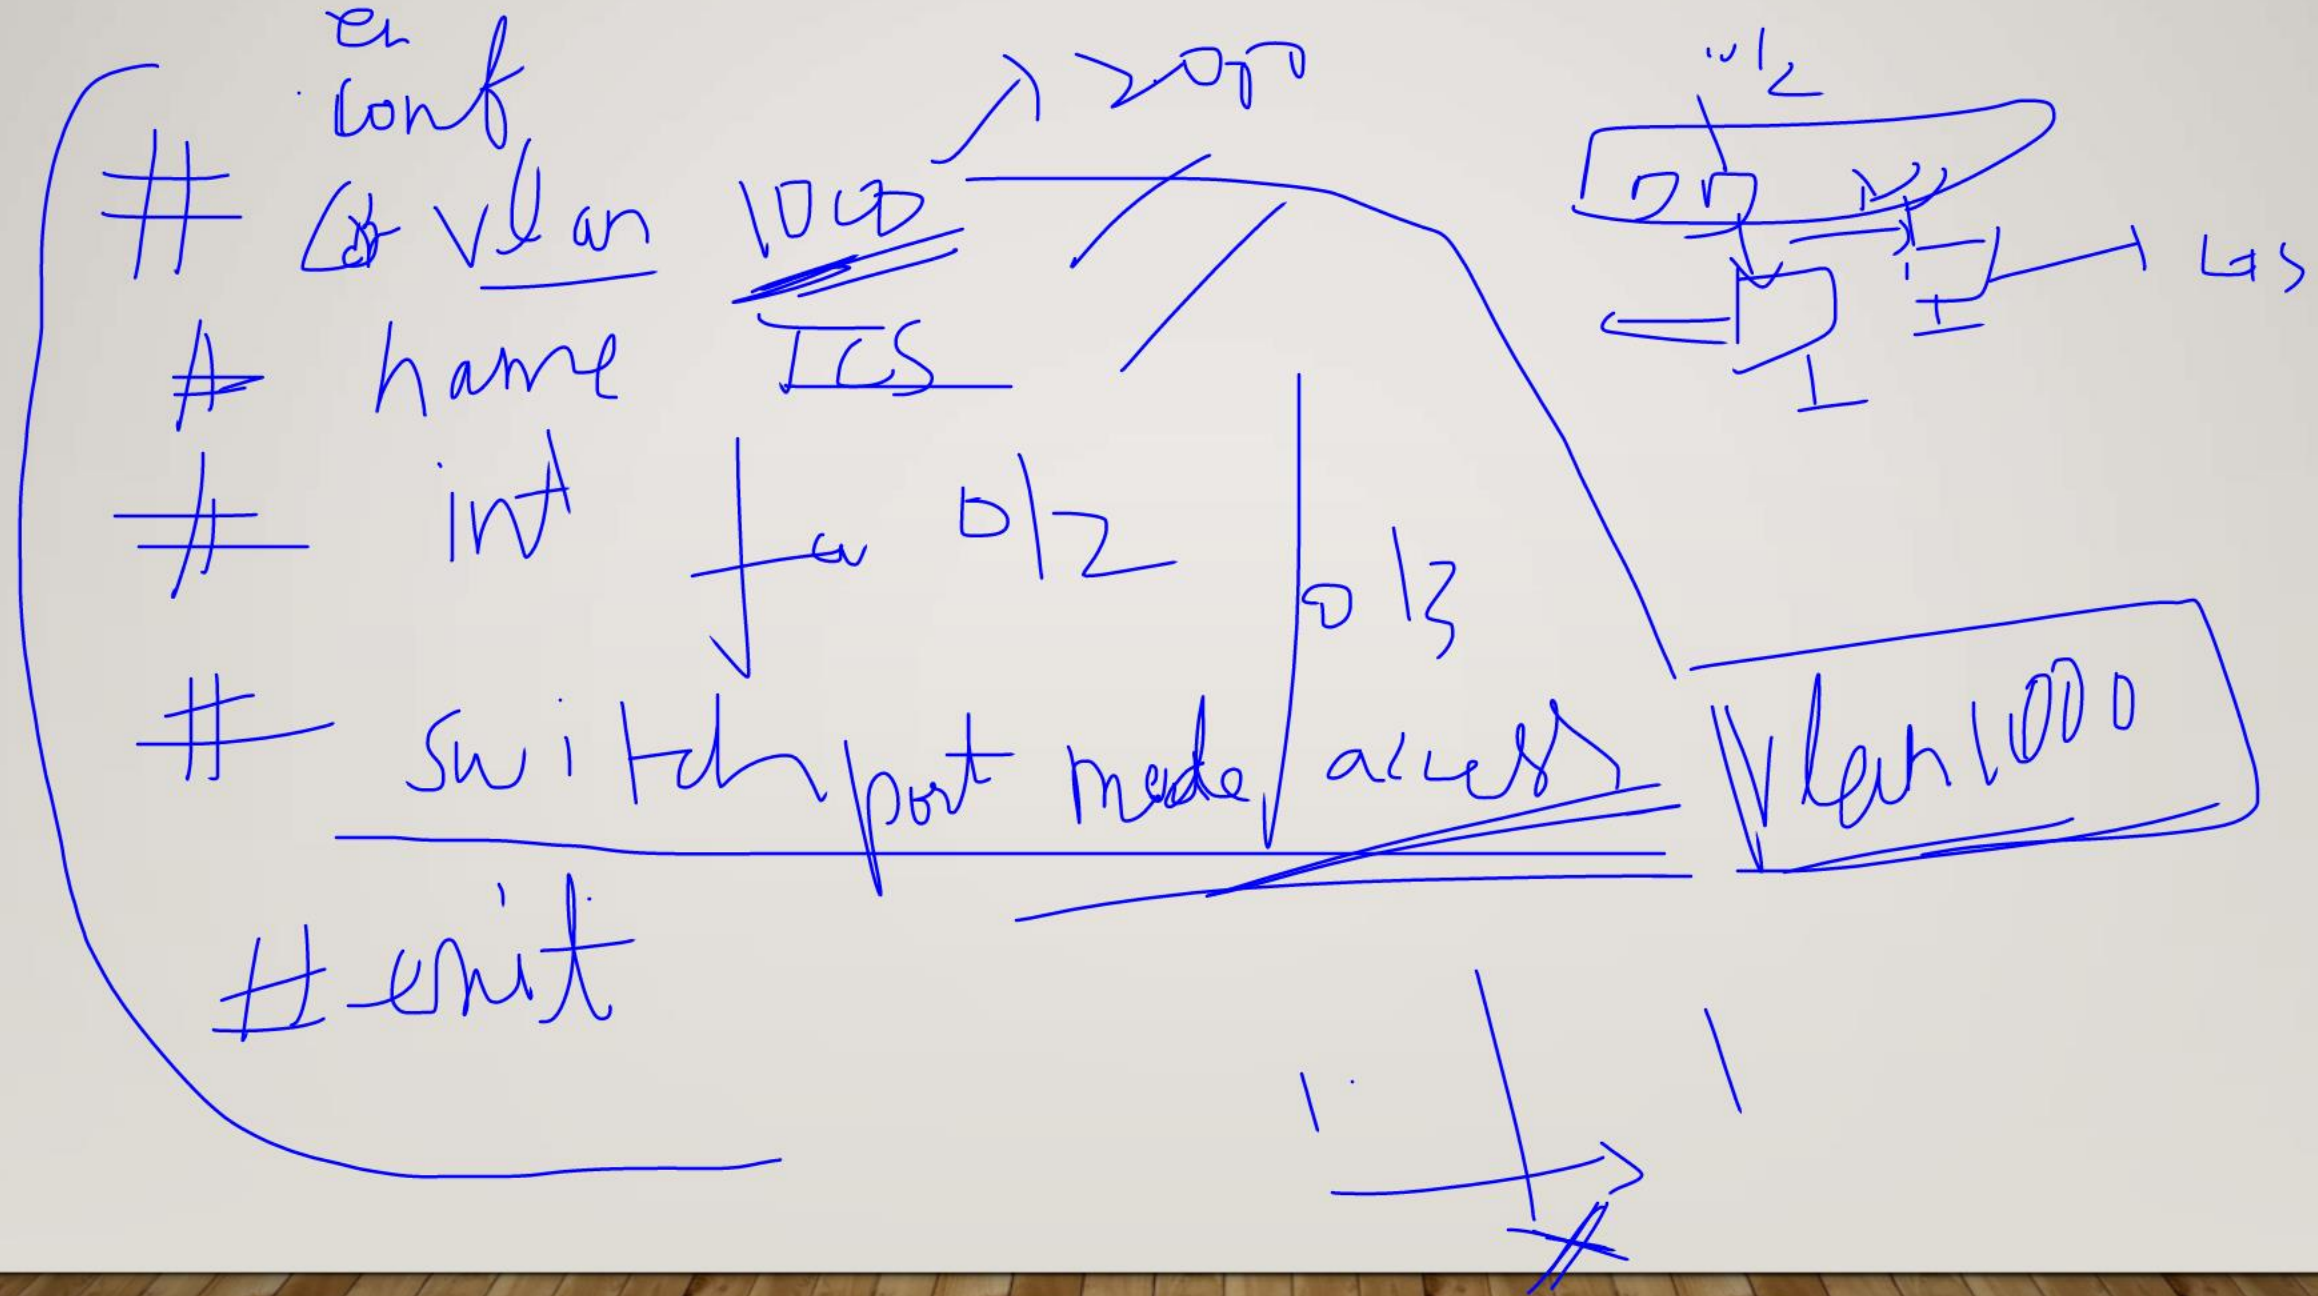 en
conf
# vlan 1000 → 2000
# name ICS
# int fa 0/2
0/3
# switchport mode access vlan 1000
# exit
0/2